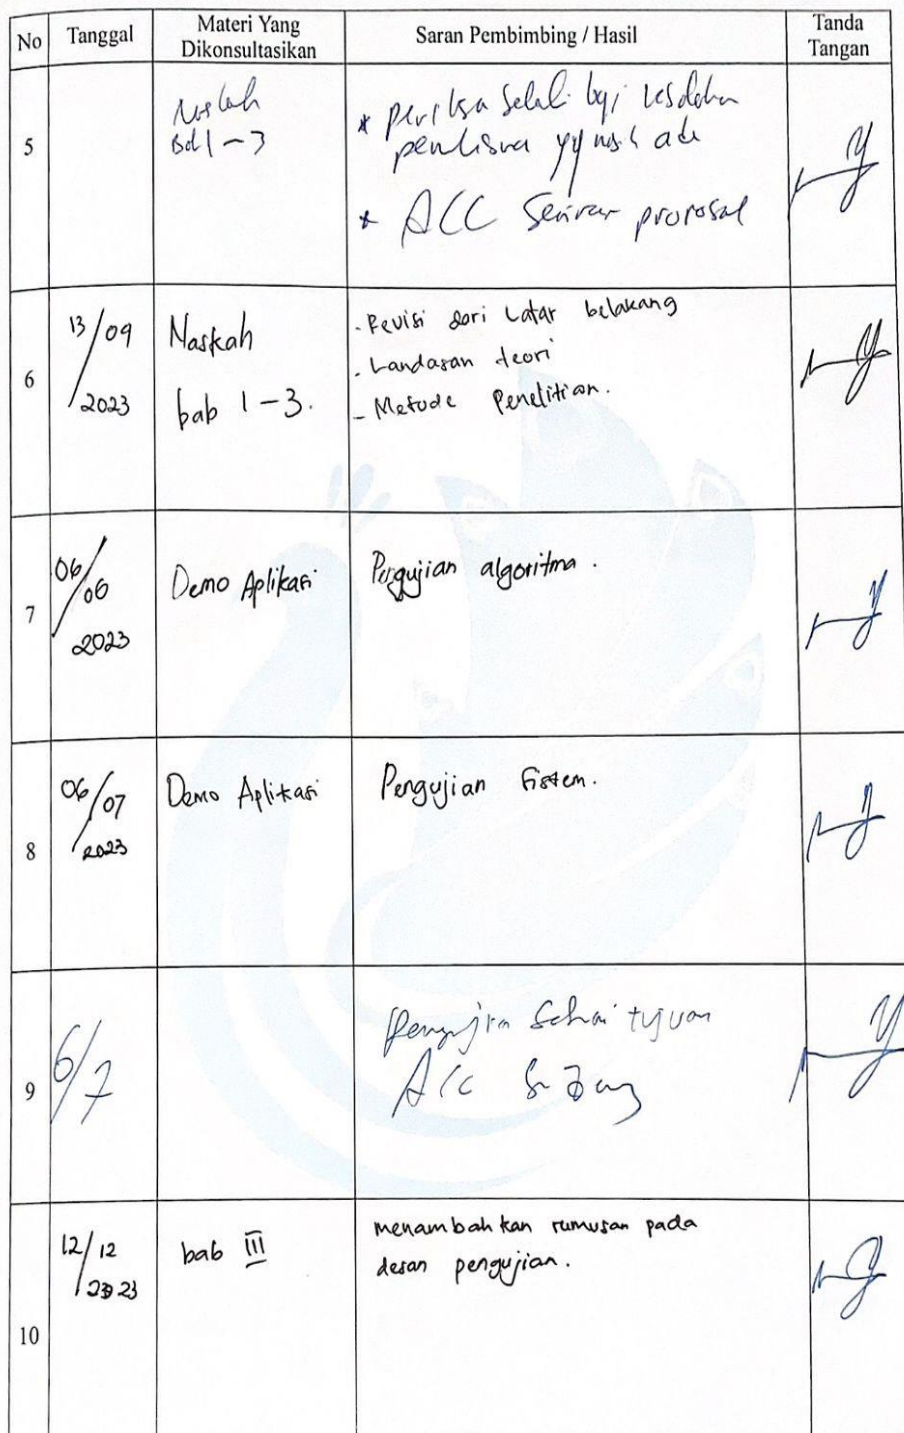 No Tanggal Materi Yang Dikonsultasikan Saran Pembimbing / Hasil Tanda Tangan
5
Naskah
Bab 1-3
* periksa sekali lagi
penulisan yg ada
* ACC Seminar proposal
6
13/09
2023
Naskah
bab 1-3.
- Revisi dari Latar belakang
- Landasan teori
- Metode Penelitian.
7
06/06
2023
Demo Aplikasi
Pengujian algoritma.
8
06/07
2023
Demo Aplikasi
Pengujian Sistem.
9
6/7
Pengujian tujuan
ACC
10
12/12
2023
bab III
menambahkan rumusan pada
desan pengujian.